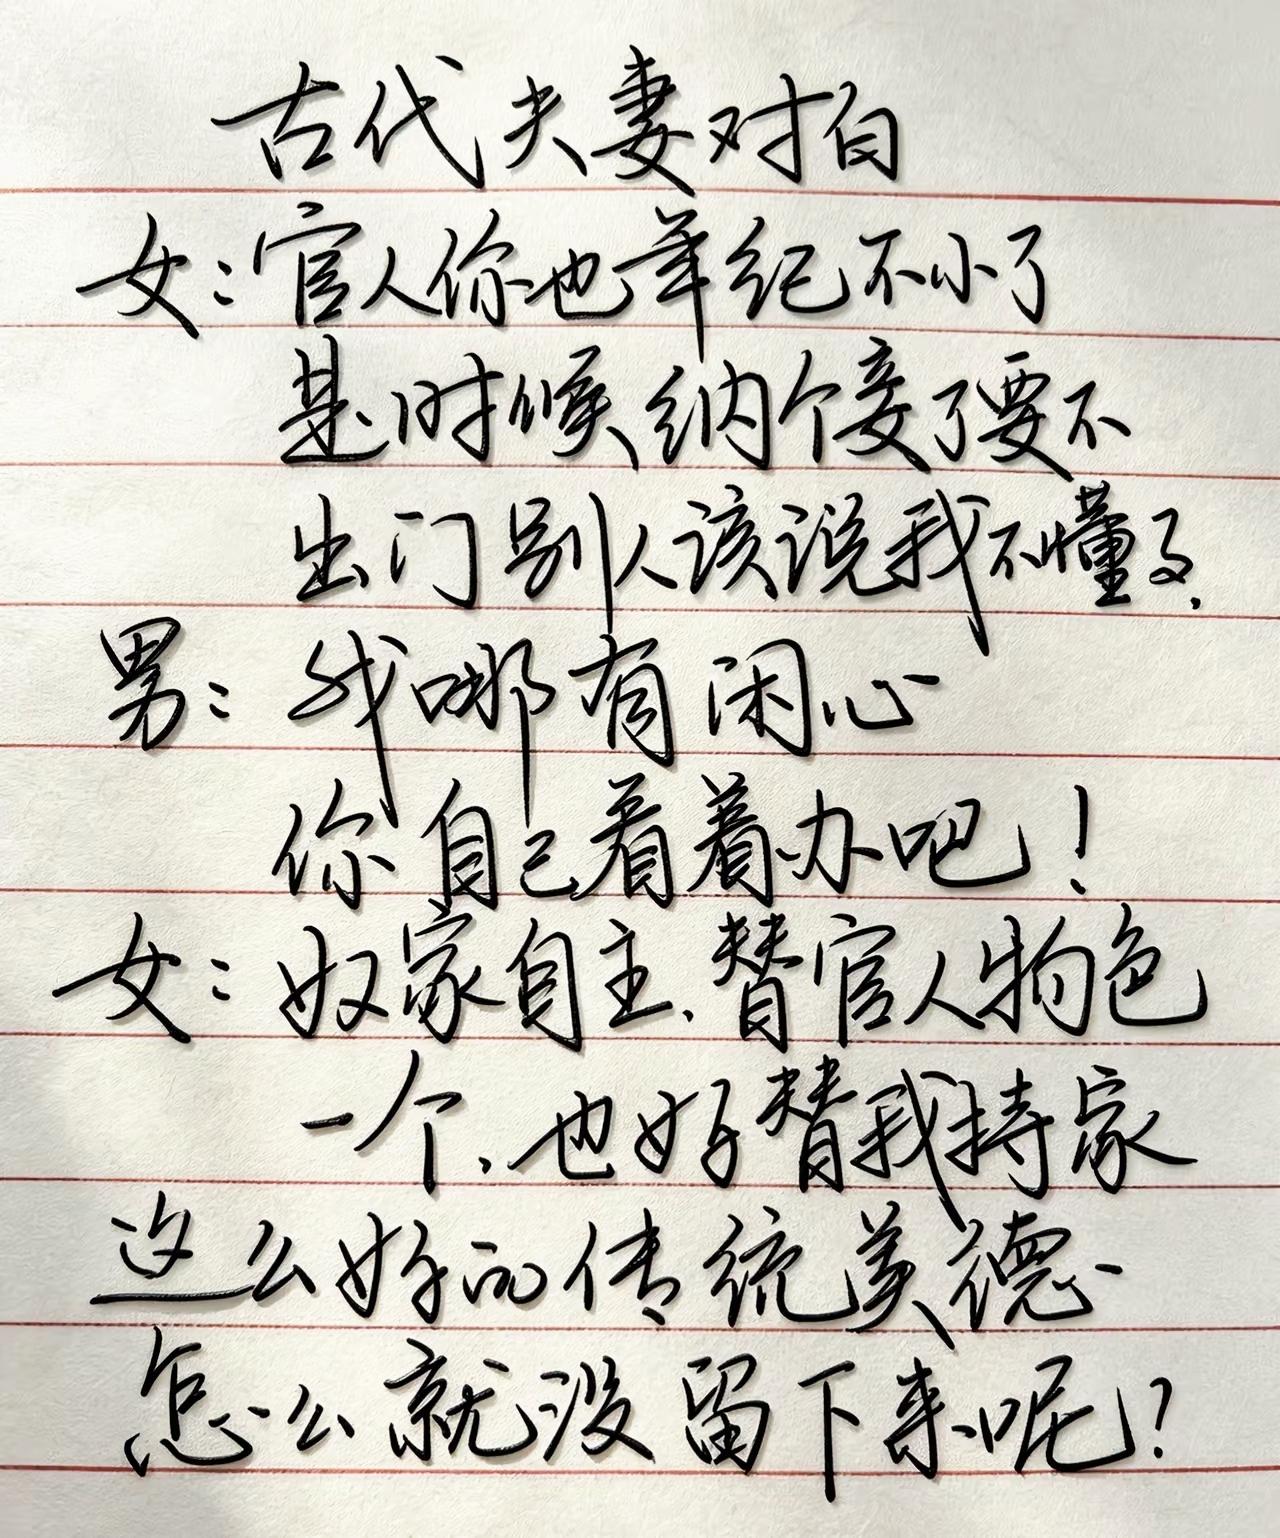 古代夫妻对白
女：官人你也年纪不小了
是时候纳个妾了要不
出门别人该说我不懂了.
男：我哪有闲心
你自己看着办吧！
女：奴家自主.替官人物色
一个.也好替我持家
这么好的传统美德
怎么就没留下来呢？